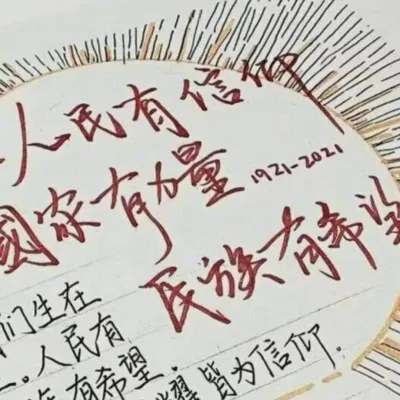 人民有信仰
國家有力量 1921-2021
民族有希望
们生在
。人民有
有希望.
皆为信仰.